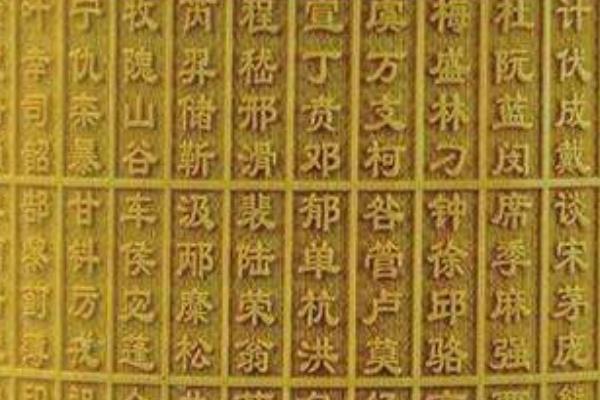 计伏成戴谈宋茅庞
杜阮蓝闵席季麻强
梅盛林刁钟徐邱骆
虞万支柯昝管卢莫
宣丁贲邓郁单杭洪
程嵇邢滑裴陆荣翁
芮羿储靳汲邴糜松
牧隗山谷车侯宓蓬
宁仇栾暴甘钭厉戎
叶幸司韶郜黎蓟薄